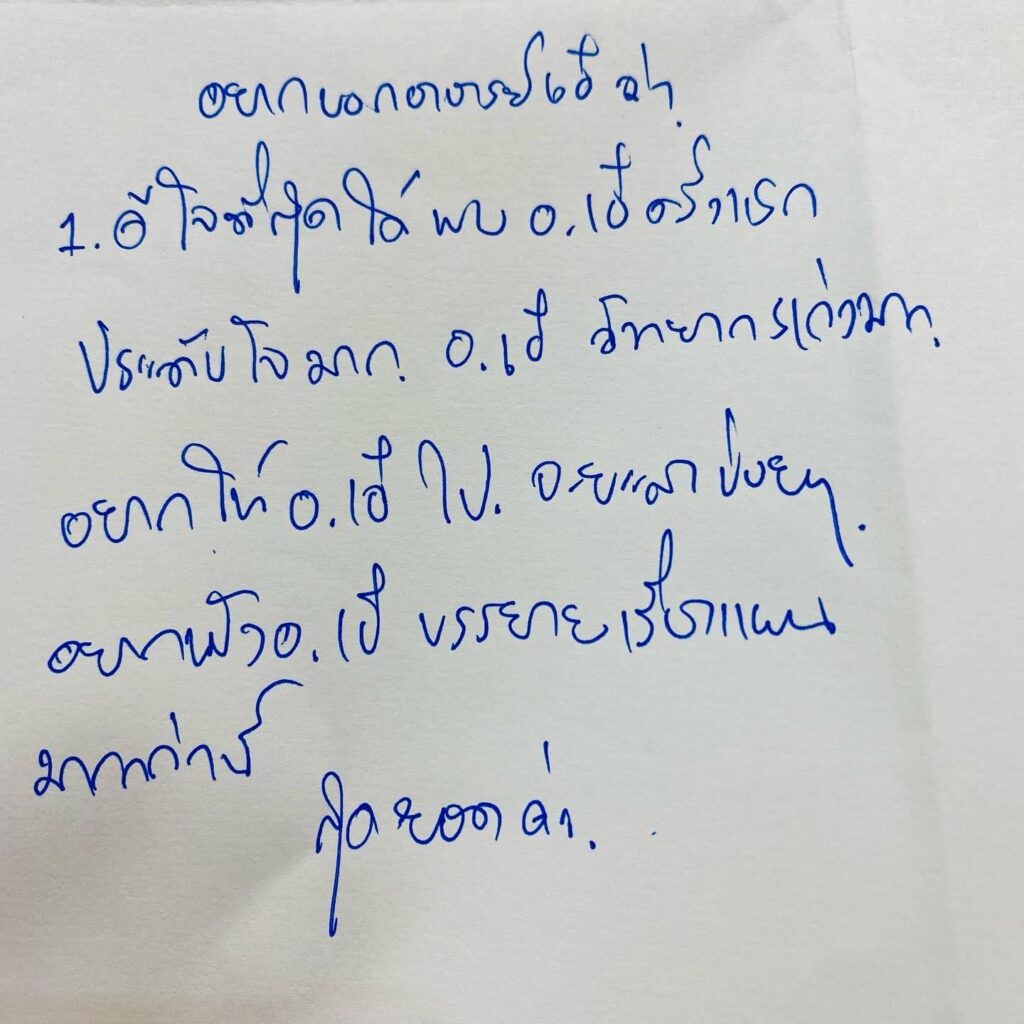 อยากบอกอาจารย์เอ๋ ว่า.
1. ดีใจที่สุดได้ พบ อ.เอ๋ครั้งแรก
ประทับใจมาก. อ.เอ๋ วิทยากรเก่งมาก.
อยากให้ อ.เอ๋ ไป. บ่อยๆ.
อยากฟัง อ.เอ๋ บรรยายเรื่องแผน
มากกว่านี้
สุดยอดค่ะ.